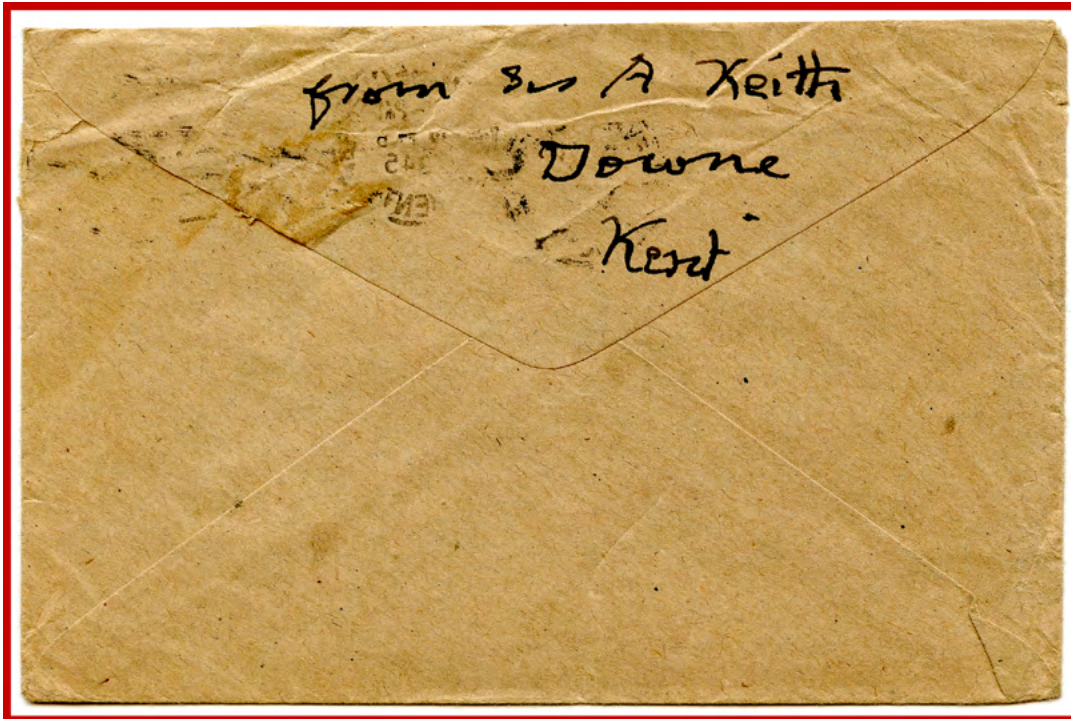 from Sir A Keith
Downe
Kent